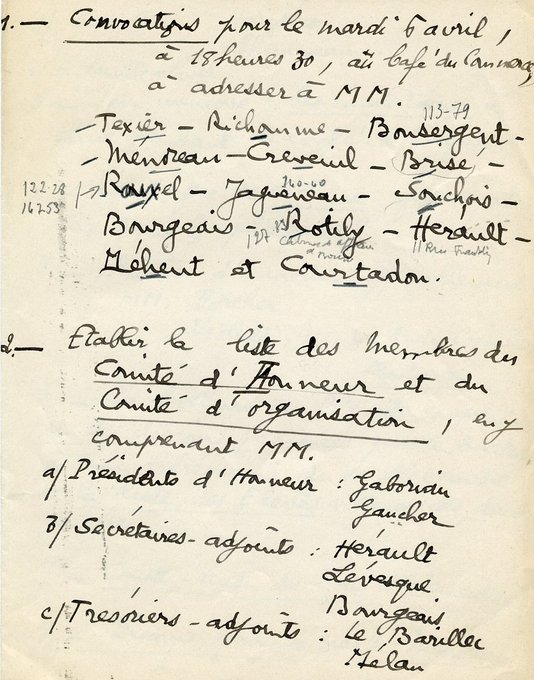 1.— Convocations pour le mardi 6 avril,
à 18 heures 30, au Café du Commerce,
à adresser à MM.
113-79
Texier - Richomme - Bonsergent -
Ménoreau - Creveuil - Brisé -
122-28
140-40
Rouxel - Jagueneau - Souchois -
Bourgeais - Rotily - Hérault -
127
11 Rue
Zéhent et Courtadon.
2.— Etablir la liste des membres du
Comité d'Honneur et du
Comité d'organisation, en y
comprenant MM.
a/ Présidents d'Honneur : Gaboriau
Gaucher
b/ Secrétaires-adjoints : Hérault
Lévesque
Bourgeais
c/ Trésoriers-adjoints : Le Barillec
Mélau